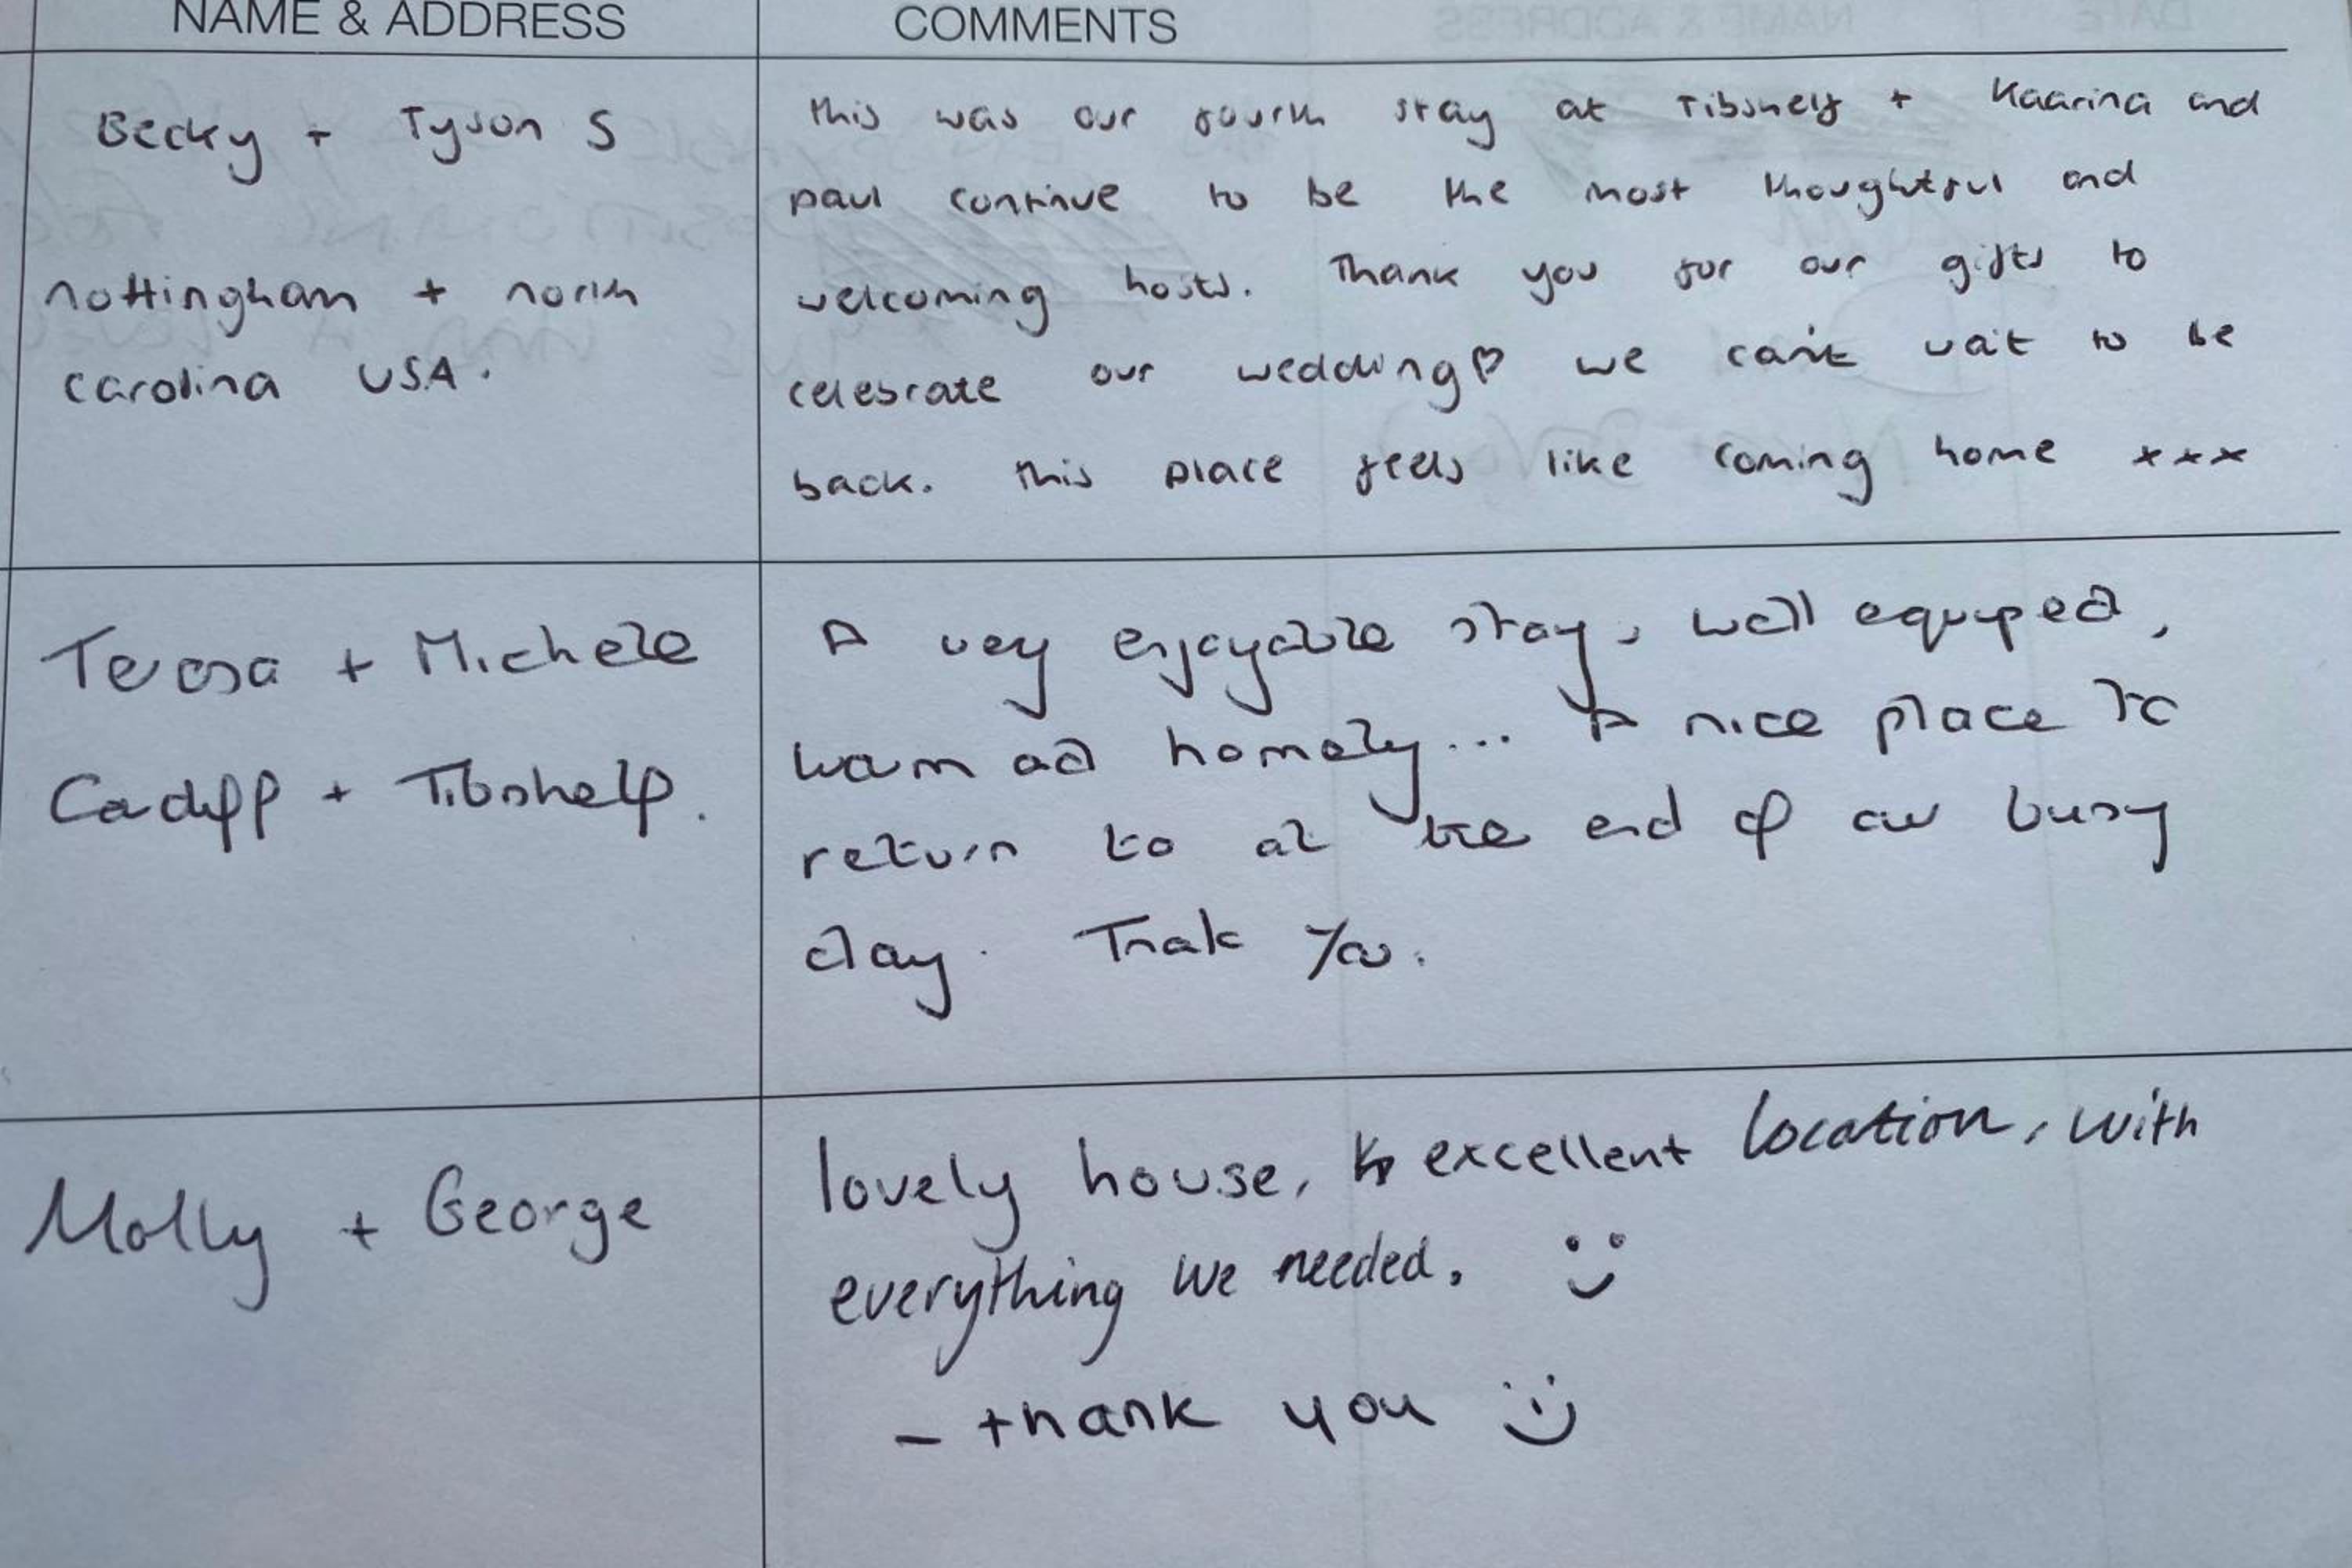 NAME & ADDRESS
COMMENTS
Becky + Tyson S
nottingham + north
carolina USA.
This was our fourth stay at Tibshelf + Kaarina and
paul continue to be the most thoughtful and
welcoming hosts. Thank you for our gifts to
celebrate our wedding♡ we can't wait to be
back. This place feels like coming home xxx
Teresa + Michele
Cardiff + Tibshelf.
A very enjoyable stay, well equiped,
warm and homely... A nice place to
return to at the end of our busy
day. Thank you.
Molly + George
lovely house, excellent location, with
everything we needed. :)
- thank you :)